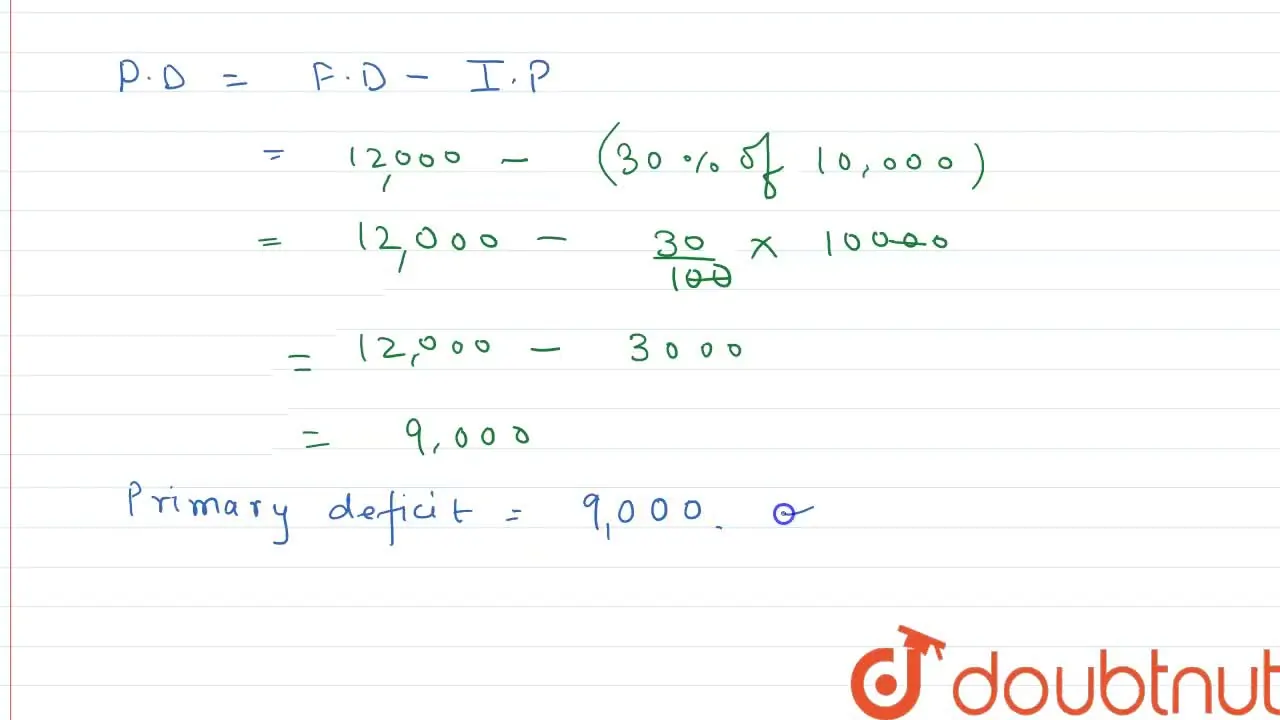 P.D = F.D - I.P
= 12,000 - (30% of 10,000)
= 12,000 - 30/100 × 10000
= 12,000 - 3000
= 9,000
Primary deficit = 9,000.
doubtnut